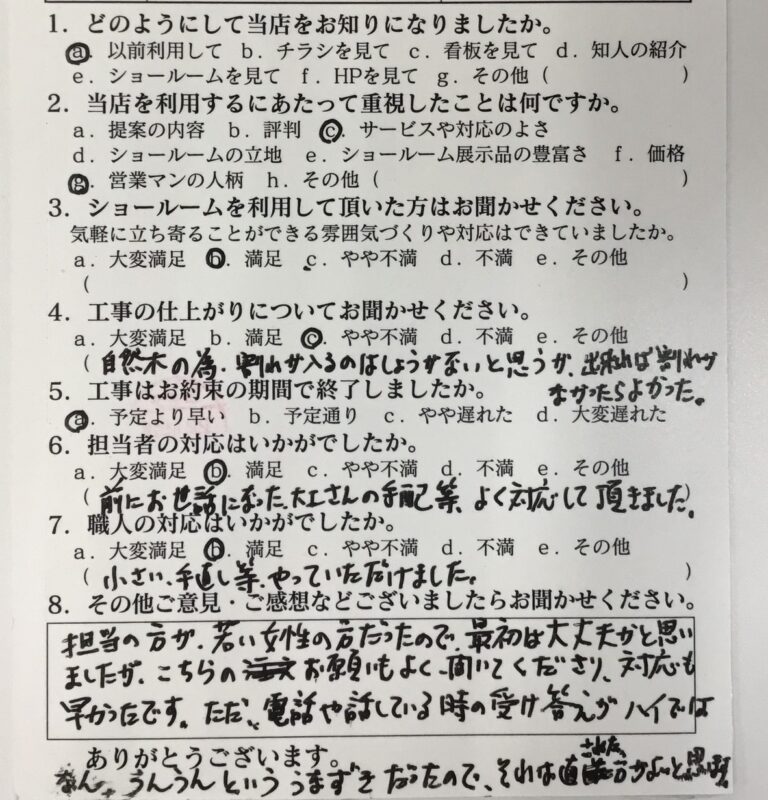 1．どのようにして当店をお知りになりましたか。
a．以前利用して　b．チラシを見て　c．看板を見て　d．知人の紹介
e．ショールームを見て　f．HPを見て　g．その他（　　　　　　　）
2．当店を利用するにあたって重視したことは何ですか。
a．提案の内容　b．評判　c．サービスや対応のよさ
d．ショールームの立地　e．ショールーム展示品の豊富さ　f．価格
g．営業マンの人柄　h．その他（　　　　　　　）
3．ショールームを利用して頂いた方はお聞かせください。
気軽に立ち寄ることができる雰囲気づくりや対応はできていましたか。
a．大変満足　b．満足　c．やや不満　d．不満　e．その他
（　　　　　　　）
4．工事の仕上がりについてお聞かせください。
a．大変満足　b．満足　c．やや不満　d．不満　e．その他
（自然木の為、割れが入るのはしょうがないと思うが、出来れば割れが
なかったらよかった。
5．工事はお約束の期間で終了しましたか。
a．予定より早い　b．予定通り　c．やや遅れた　d．大変遅れた
6．担当者の対応はいかがでしたか。
a．大変満足　b．満足　c．やや不満　d．不満　e．その他
（前にお世話になった、大工さんの手配等、よく対応して頂きました。）
7．職人の対応はいかがでしたか。
a．大変満足　b．満足　c．やや不満　d．不満　e．その他
（小さい、手直し等、やっていただけました。　）
8．その他ご意見・ご感想などございましたらお聞かせください。
担当の方が、若い女性の方だったので、最初は大丈夫かと思い
ましたが、こちらのお願いもよく聞いてくださり、対応も
早かったです。ただ、電話や話している時の受け答えがハイでは
ありがとうございます。
なく、うんうんといううなずきだったので、それは直された方がよいと思います。